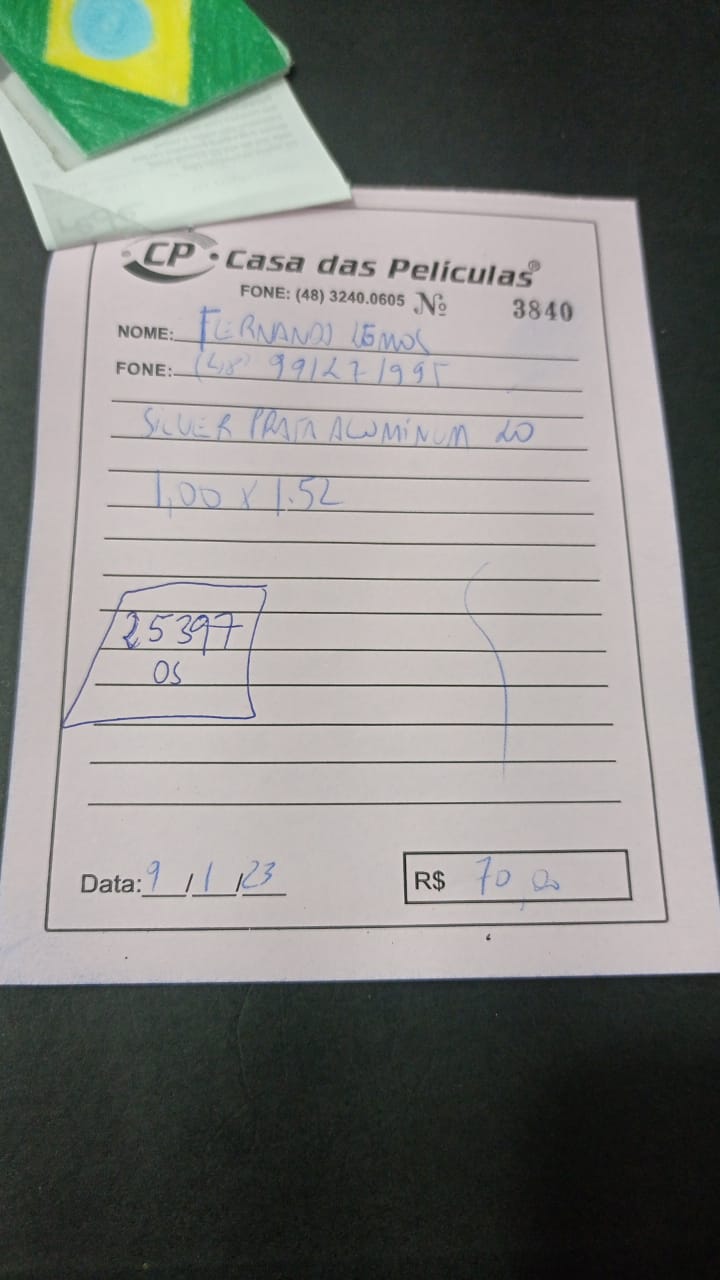 CP • Casa das Películas®
FONE: (48) 3240.0605 Nº 3840
NOME: FERNANDO LEMOS
FONE: (48) 99127 1995
SILVER PRATA ALUMINUM 20
1,00 x 1.52
25397
OS
Data: 9 / 1 / 23
R$ 70,00